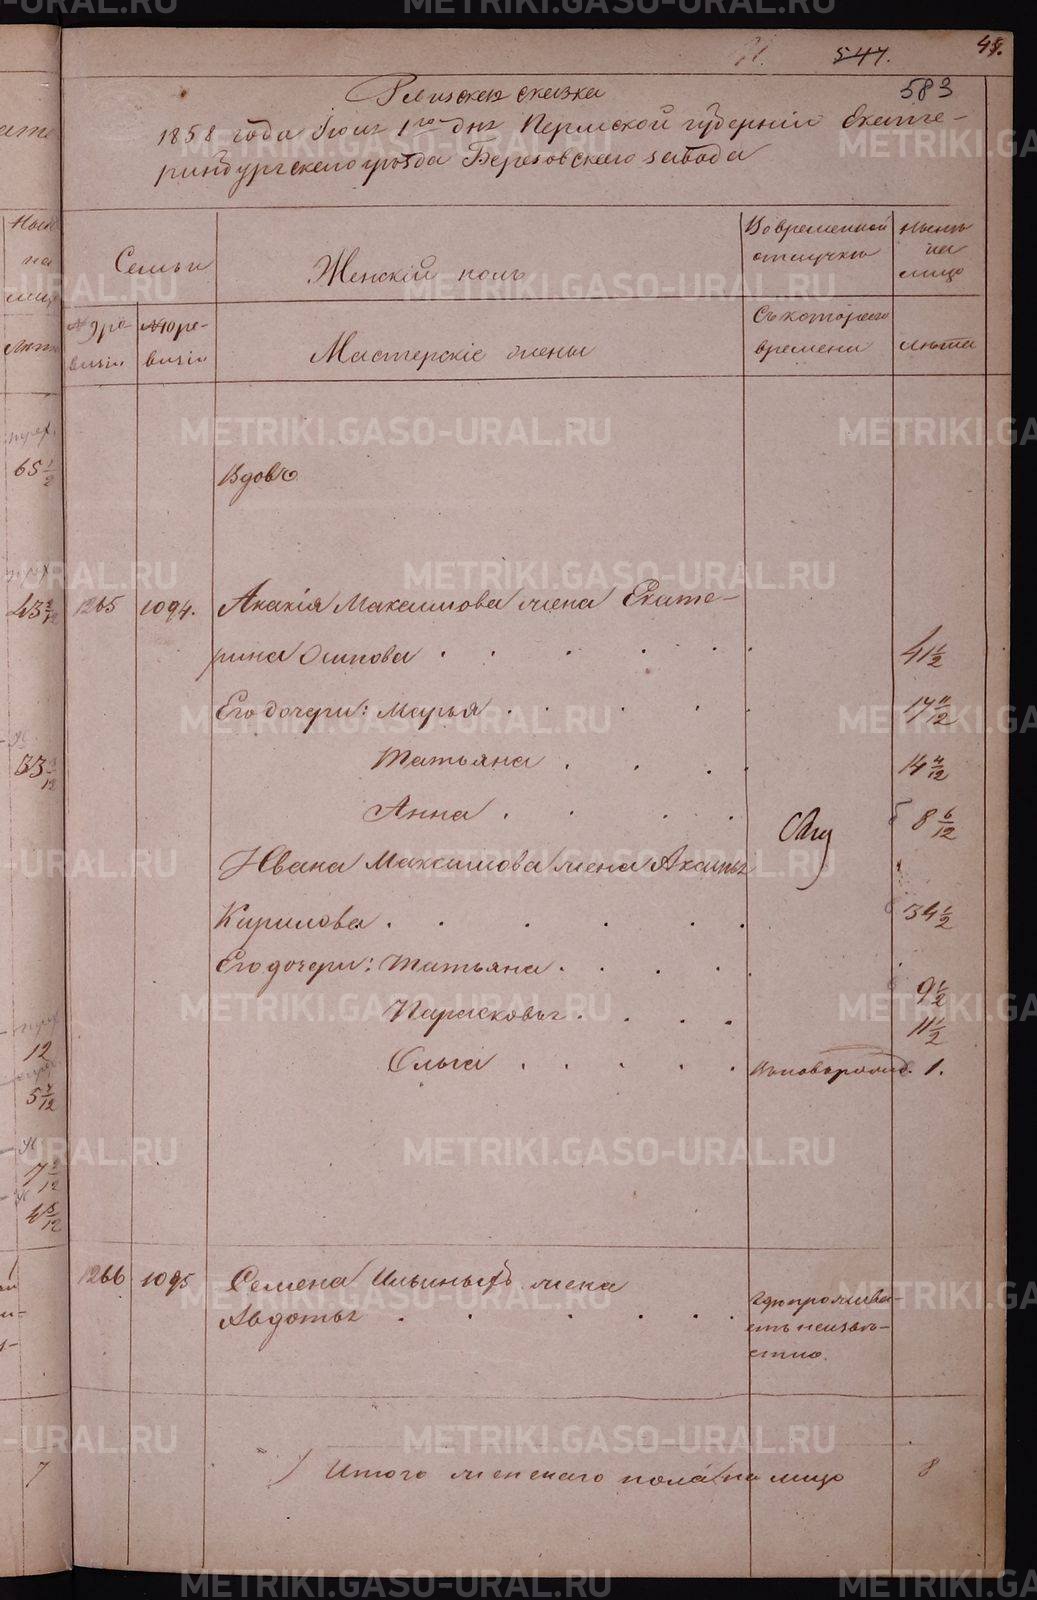 547.
48.
583
Ревизская сказка
1858 года Іюня 1го дня Пермской губерніи Екате-
ринбургскаго уезда Березовскаго завода
Семьи
Женскій полъ
Во временной
отлучке
Ныне
на
лицо
№ 9 ре-
визіи
№ 10 ре-
визіи
Мастерскіе жены
Съ котораго
времени
лета
65 1/2
Вдовы
43 2/12
1265
1094.
Акакія Максимова жена Екате-
рина Осипова
41 1/2
Его дочери: Марья
14 11/12
Татьяна
14 4/12
Анна
8 6/12
Ивана Максимова жена Аксинья
Кирилова
34 1/2
Его дочери: Татьяна
9 1/2
Парасковья
11 1/2
Ольга
вновьрожд.
1.
12
5 7/12
1266
1095
Семена Ильиныхъ жена
Авдотья
где прожива-
етъ неизве-
стно.
Итого женскаго пола на лицо
8
7
METRIKI.GASO-URAL.RU